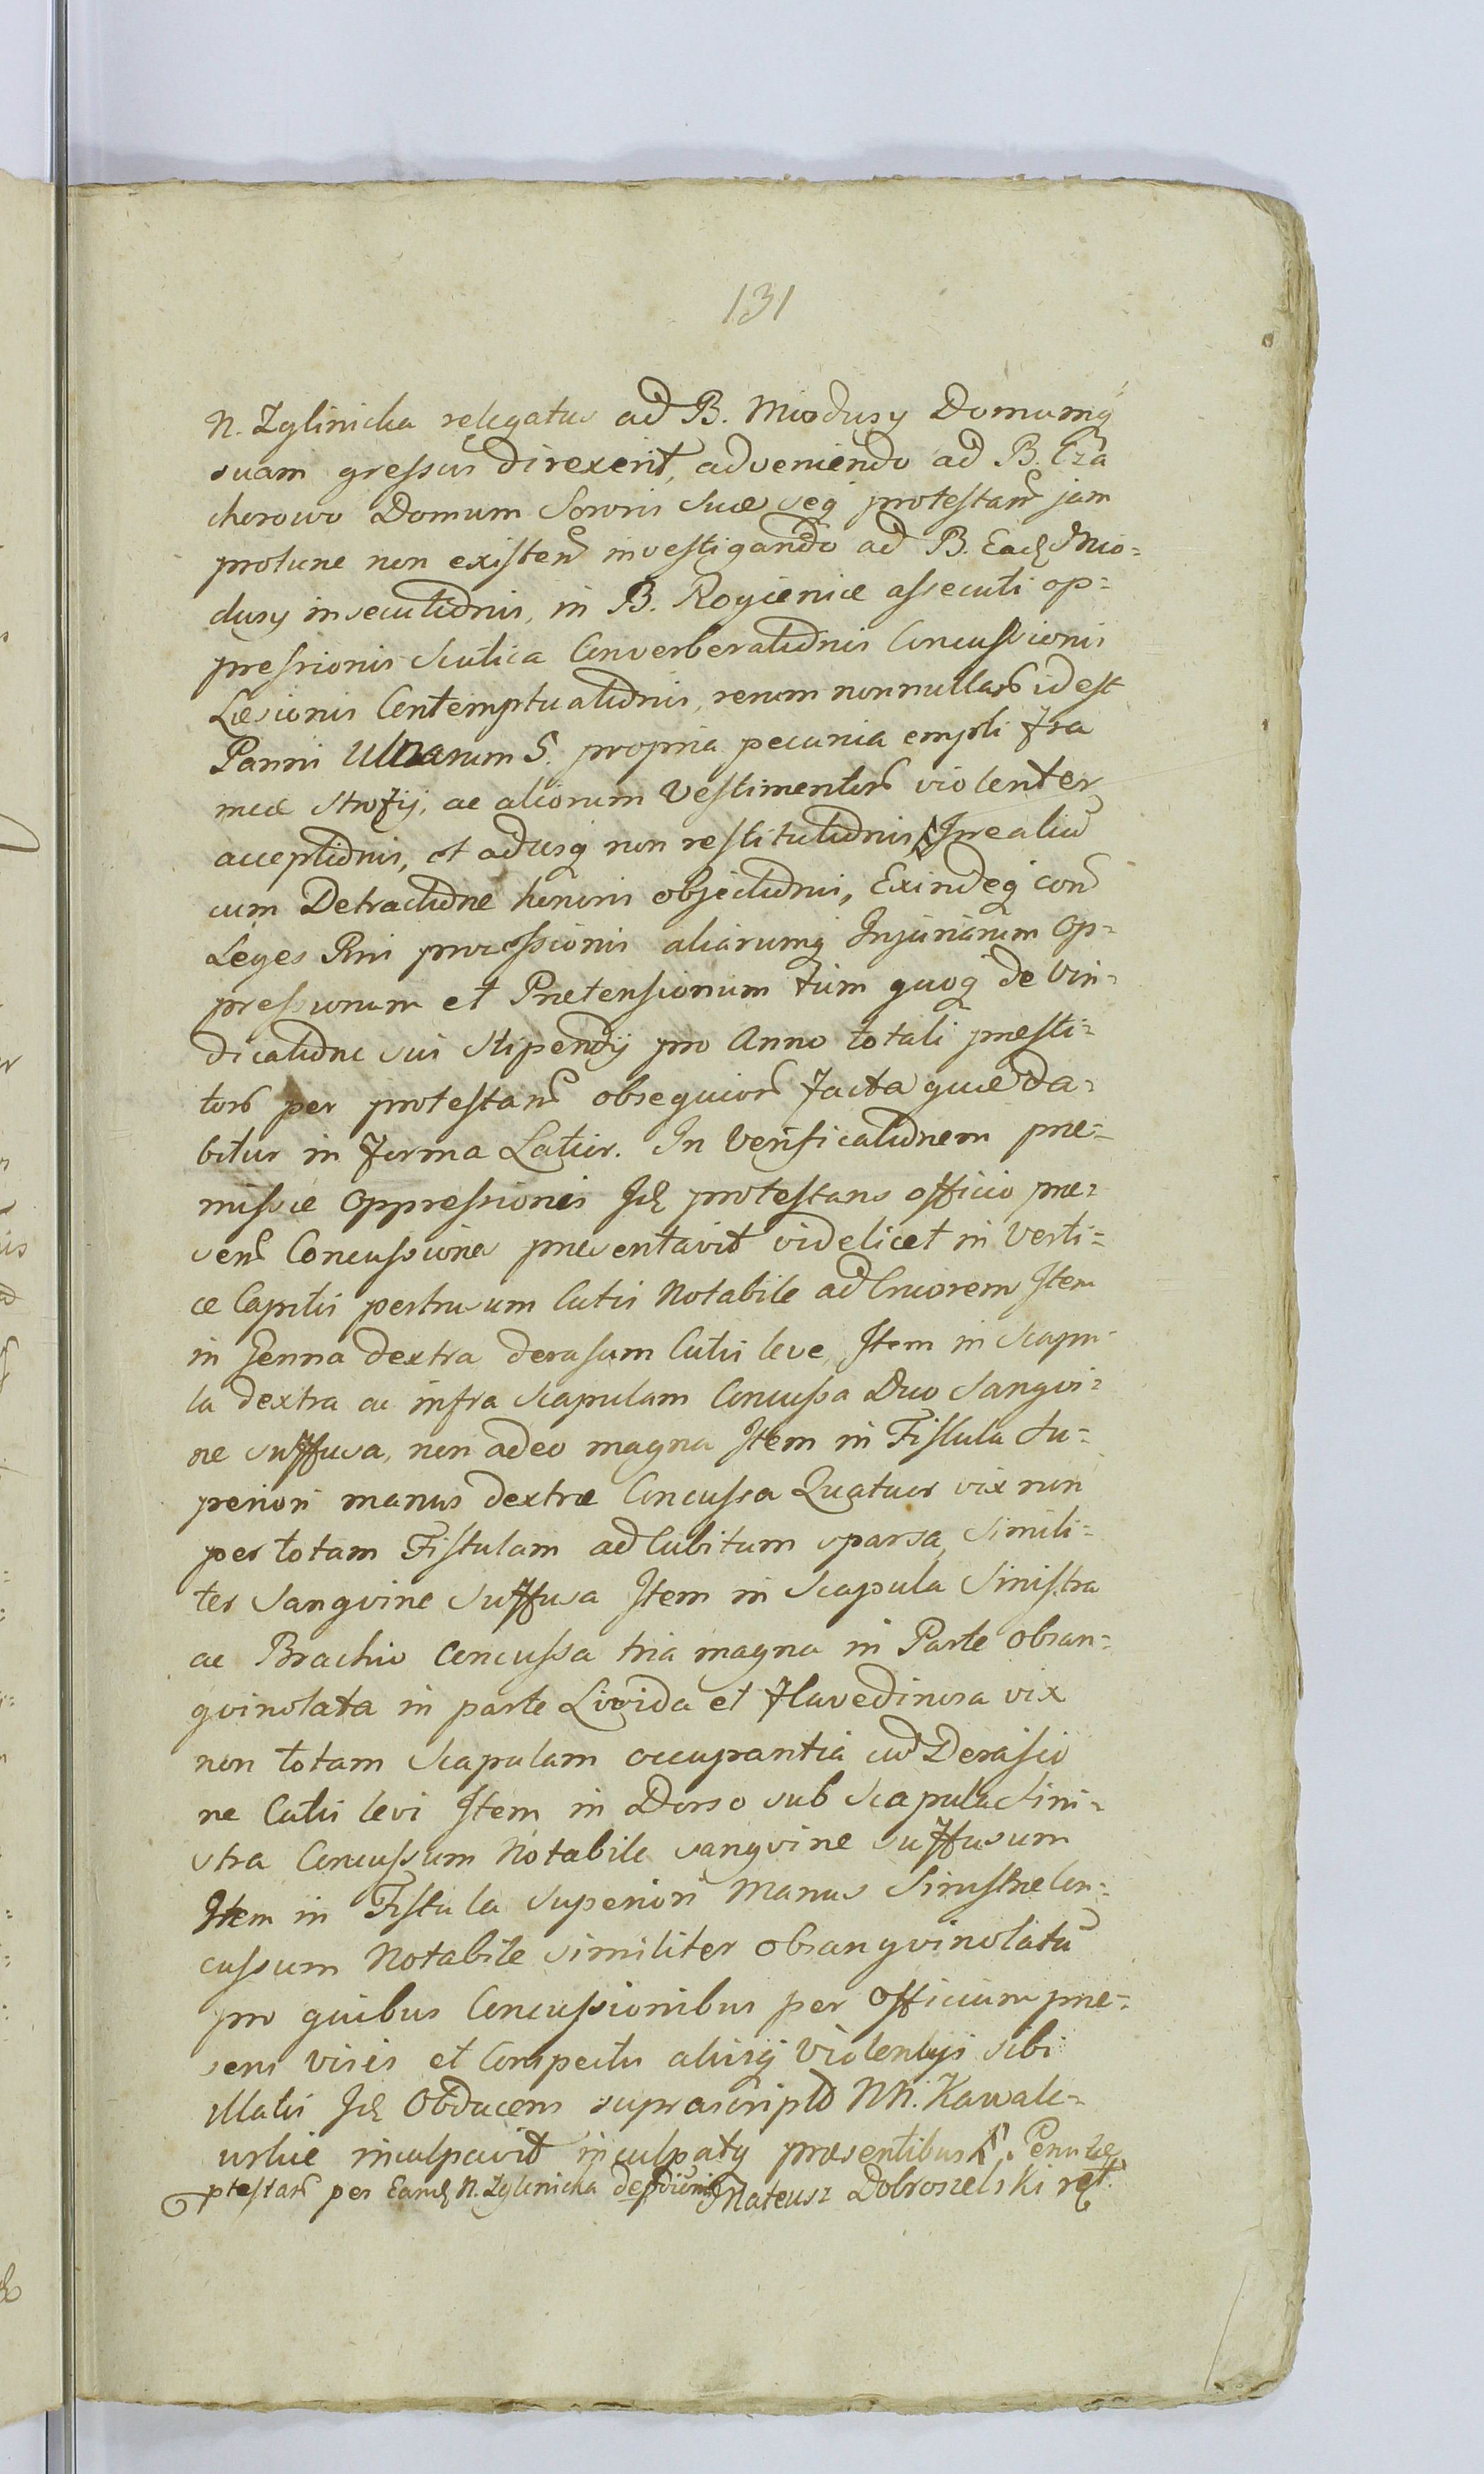 131
N. Zglinicka relegatus ad B. Miodusy Domumq̃
suam gressus direxerit, adveniendo ad B. Cza
chorowo Domum Sororis suæ seq̃ protestan̄ jam
protunc non existen̄ investigando ad B. Ead Mio=
dusy insecutionis, in B. Rogienice assecuti op=
pressionis scutica Converberationis Concussionis
Læsionis Contemptuationis, rerum nonnullar̄ id est
Panni Ulnarum 5. propria pecunia empti fra
meæ strofij, ac aliorum Vestimentor̄ violenter
acceptionis, et adusq̃ non restitutionis
cum Detractione honoris objectionis, Exindeq̃ con̄
Leges Rni processionis aliarumq̃ Injuriarum Op=
pressionum et Prætensionum tum quoq̃ de Vin=
dicatione sui stipendij pro Anno totali præsti=
tor̄ per protestan̄ obsequior̄ facta quæ da=
bitur in forma Latior. In Verificationem præ=
missæ Oppressionis Id protestans officio præ=
sen̄ Concussiones præsentavit videlicet in Verti=
ce Capitis pertusum Cutis Notabile ad Cruorem Item
in Genna dextra derasum Cutis leve, Item in Scapu=
la dextra ac infra scapulam Concussa Duo Sangvi=
ne suffusa, non adeo magna Item in Fistula Su=
periori manus dextræ Concussa Quatuor vix non
per totam Fistulam ad Cubitum sparsa, simili=
ter Sangvine Suffusa Item in Scapula Sinistra
ac Brachio Concussa tria magna in Parte obsan=
gvinolata in parte Livida et flavedinosa vix
non totam Scapulam occupantia cū Derasio
ne Cutis levi Item in Dorso sub Scapula Sini=
stra Concussum Notabile sangvine suffusum
Item in Fistula Superiori Manus Sinistræ Con=
cussum Notabile similiter obsangvinolatū
pro quibus Concussionibus per Officium præ=
sens visis et Conspectis aliisq̃ Violentijs sibi
illatis Id Obducens suprascripto NN. Kawale=
urhie inculpavit inculpatq̃ præsentibus
ptestan̄ per Eand N. Zglinicka Mateusz Dobrosielski